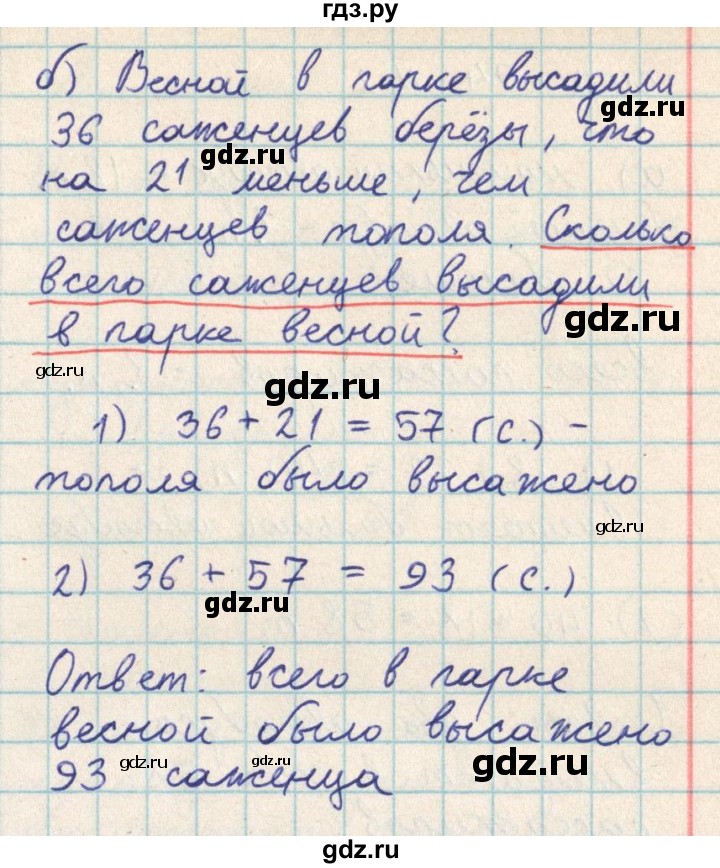 гдз.ру
б) Весной в парке высадили
gdz.ru
36 саженцев берёзы, что
gdz.ru
на 21 меньше, чем
саженцев тополя. Сколько
всего саженцев высадили
gdz.ru
в парке весной?
gdz.ru
gdz.ru
1) 36 + 21 = 57 (с.) -
тополя было высажено
gdz.ru
2) 36 + 57 = 93 (с.)
gdz.ru
Ответ: всего в парке
весной было высажено
gdz.ru
gdz.ru
gdz.ru
93 саженца
gdz.ru